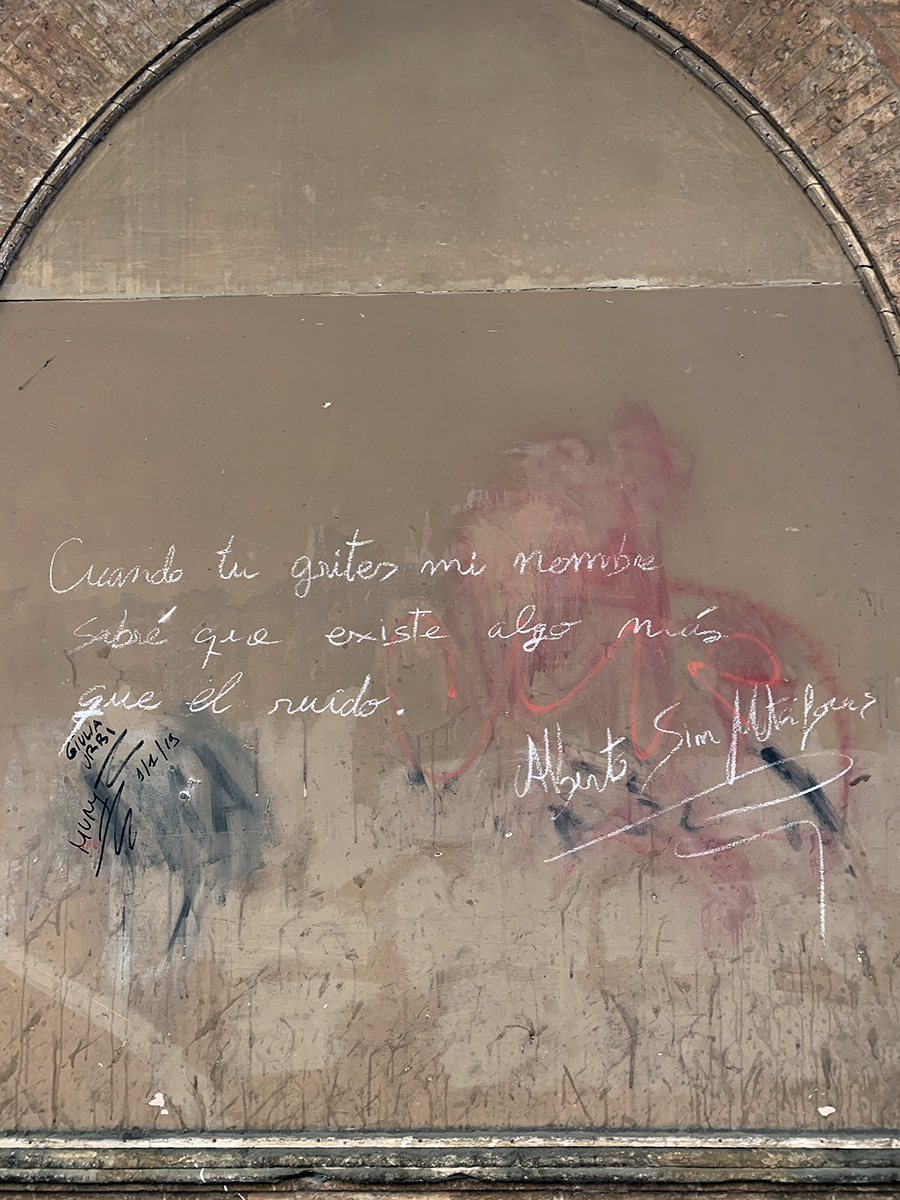 Cuando tu grites mi nombre
sabré que existe algo más
que el ruido.
Alberto Sin
GIULIA
URBI
1/1/19